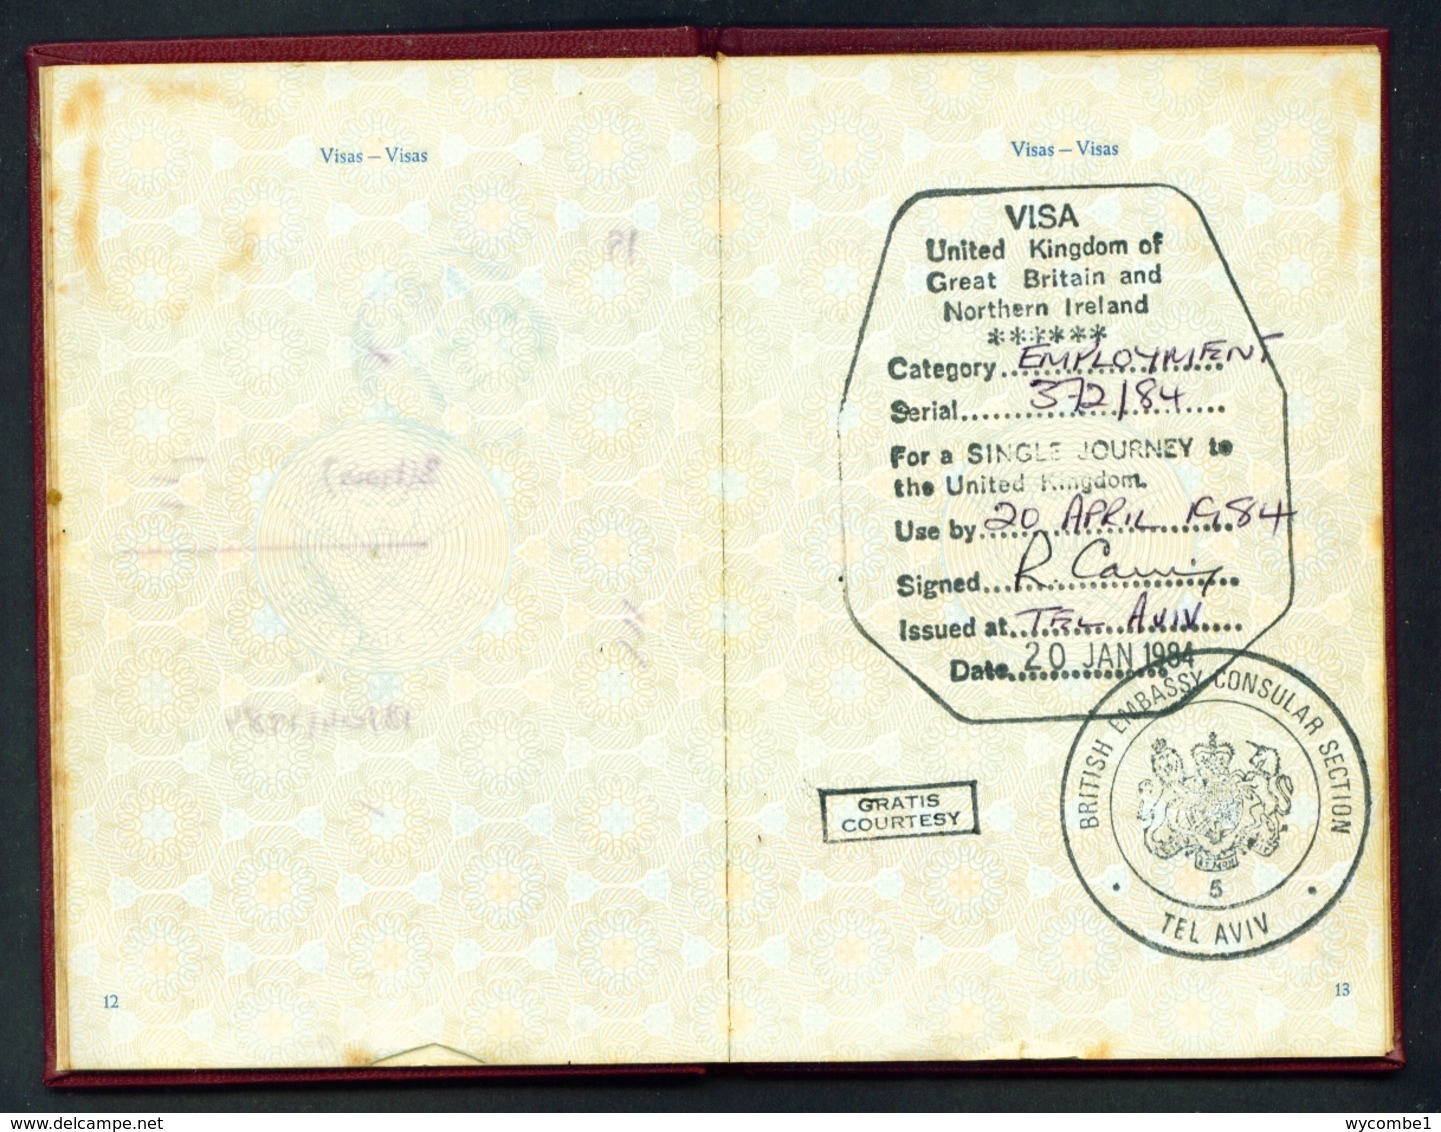 Visas – Visas
12
Visas – Visas
VISA
United Kingdom of
Great Britain and
Northern Ireland
******
Category EMPLOYMENT
Serial 372/84
For a SINGLE JOURNEY to
the United Kingdom.
Use by 20 APRIL 1984
Signed R.
Issued at TEL AVIV
Date 20 JAN 1984
BRITISH EMBASSY CONSULAR SECTION
5
TEL AVIV
GRATIS
COURTESY
13
delcampe.net
wycombe1